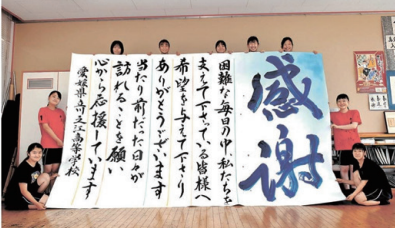 感謝
困難な毎日の中、私たちを
支えて下さっている皆様へ
希望を与えて下さり
ありがとうございます
当たり前だった日々が
訪れることを願い、
心から応援しています
愛媛県立三島高等学校